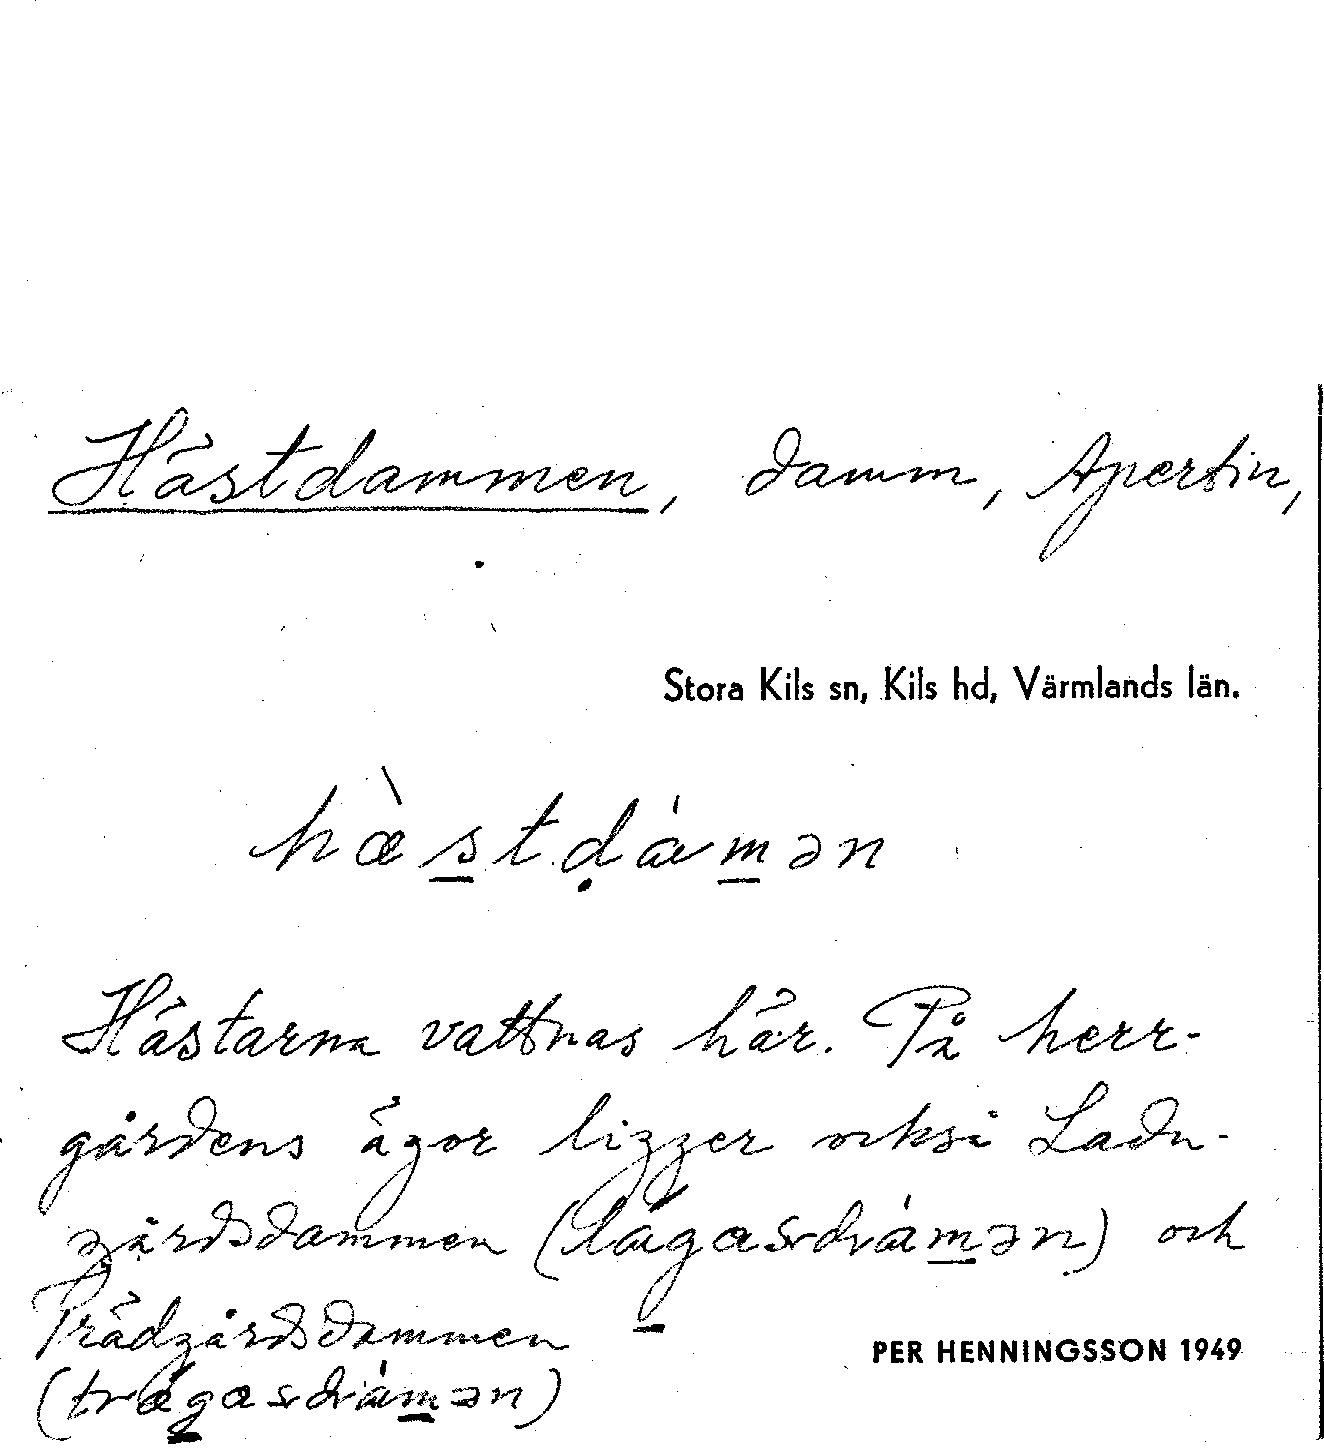 Hästdammen, damm, Apertin,
Stora Kils sn, Kils hd, Värmlands län.
hæ̀s̲tḍám̲ən
Hästarna vattnas här. På herr-
gårdens ägor ligger också Ladu-
gårdsdammen (làg̲asdám̲ən) och
Trädgårdsdammen
PER HENNINGSSON 1949
(træ̀g̲asdám̲ən)